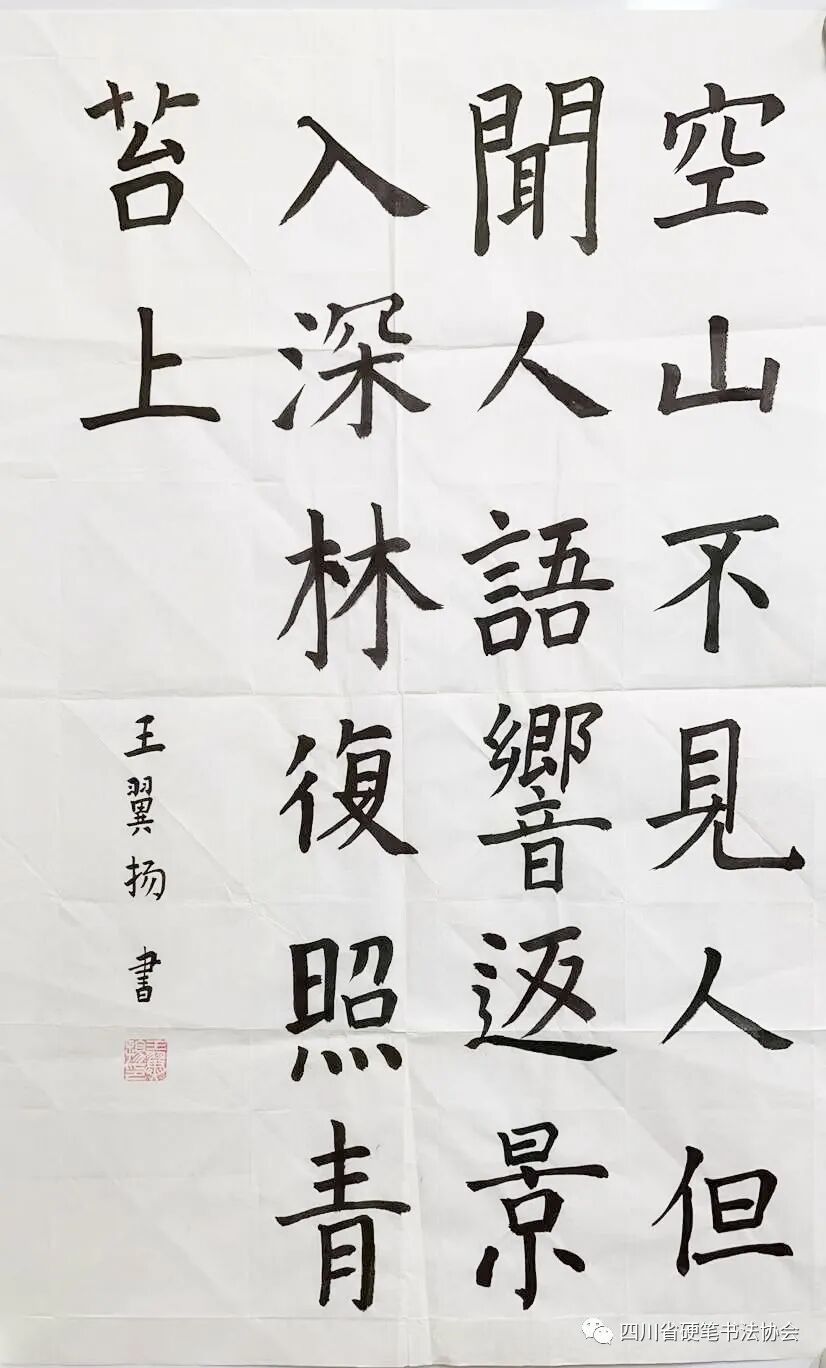 空山不見人但
聞人語響返景
入深林復照青
苔上
王翼扬 書
四川省硬笔书法协会